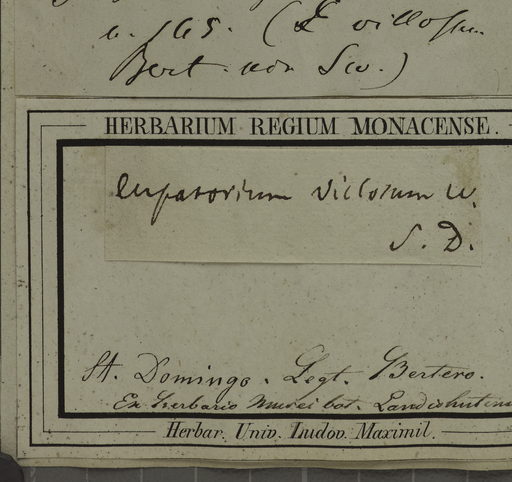 n. 165. (E villosum
Bert. non Sw.)
HERBARIUM REGIUM MONACENSE.
Eupatorium villosum W.
S. D.
St. Domingo. Legt. Bertero.
Ex herbario musei bot. Landishutens
Herbar. Univ. Ludov. Maximil.